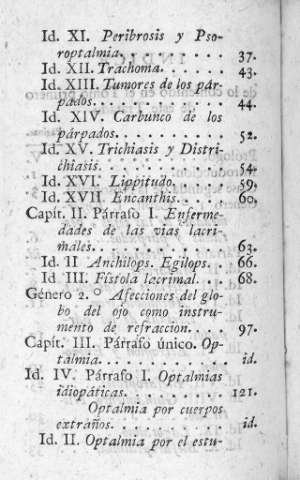 Id. XI. Peribrosis y Pso-
roptalmia. . . . . . . . . 37.
Id. XII. Trachoma. . . . . . 43.
Id. XIII. Tumores de los pár-
pados. . . . . . . . . . . 44.
Id. XIV. Carbunco de los
párpados. . . . . . . . . . 52.
Id. XV. Trichiasis y Distri-
chiasis. . . . . . . . . . . 54.
Id. XVI. Lippitudo. . . . . 59.
Id. XVII. Encanthis. . . . . 60.
Capít. II. Párrafo I. Enferme-
dades de las vias lacri-
males. . . . . . . . . . . . 63.
Id. II Anchilops. Egilops. . 66.
Id III. Fístola lacrimal. . . 68.
Género 2.º Afecciones del glo-
bo del ojo como instru-
mento de refraccion. . . . . 97.
Capít. III. Párrafo único. Op-
talmia. . . . . . . . . . . id.
Id. IV. Párrafo I. Optalmias
idiopáticas. . . . . . . . . 121.
Optalmia por cuerpos
extraños. . . . . . . . . . id.
Id. II. Optalmia por el estu-